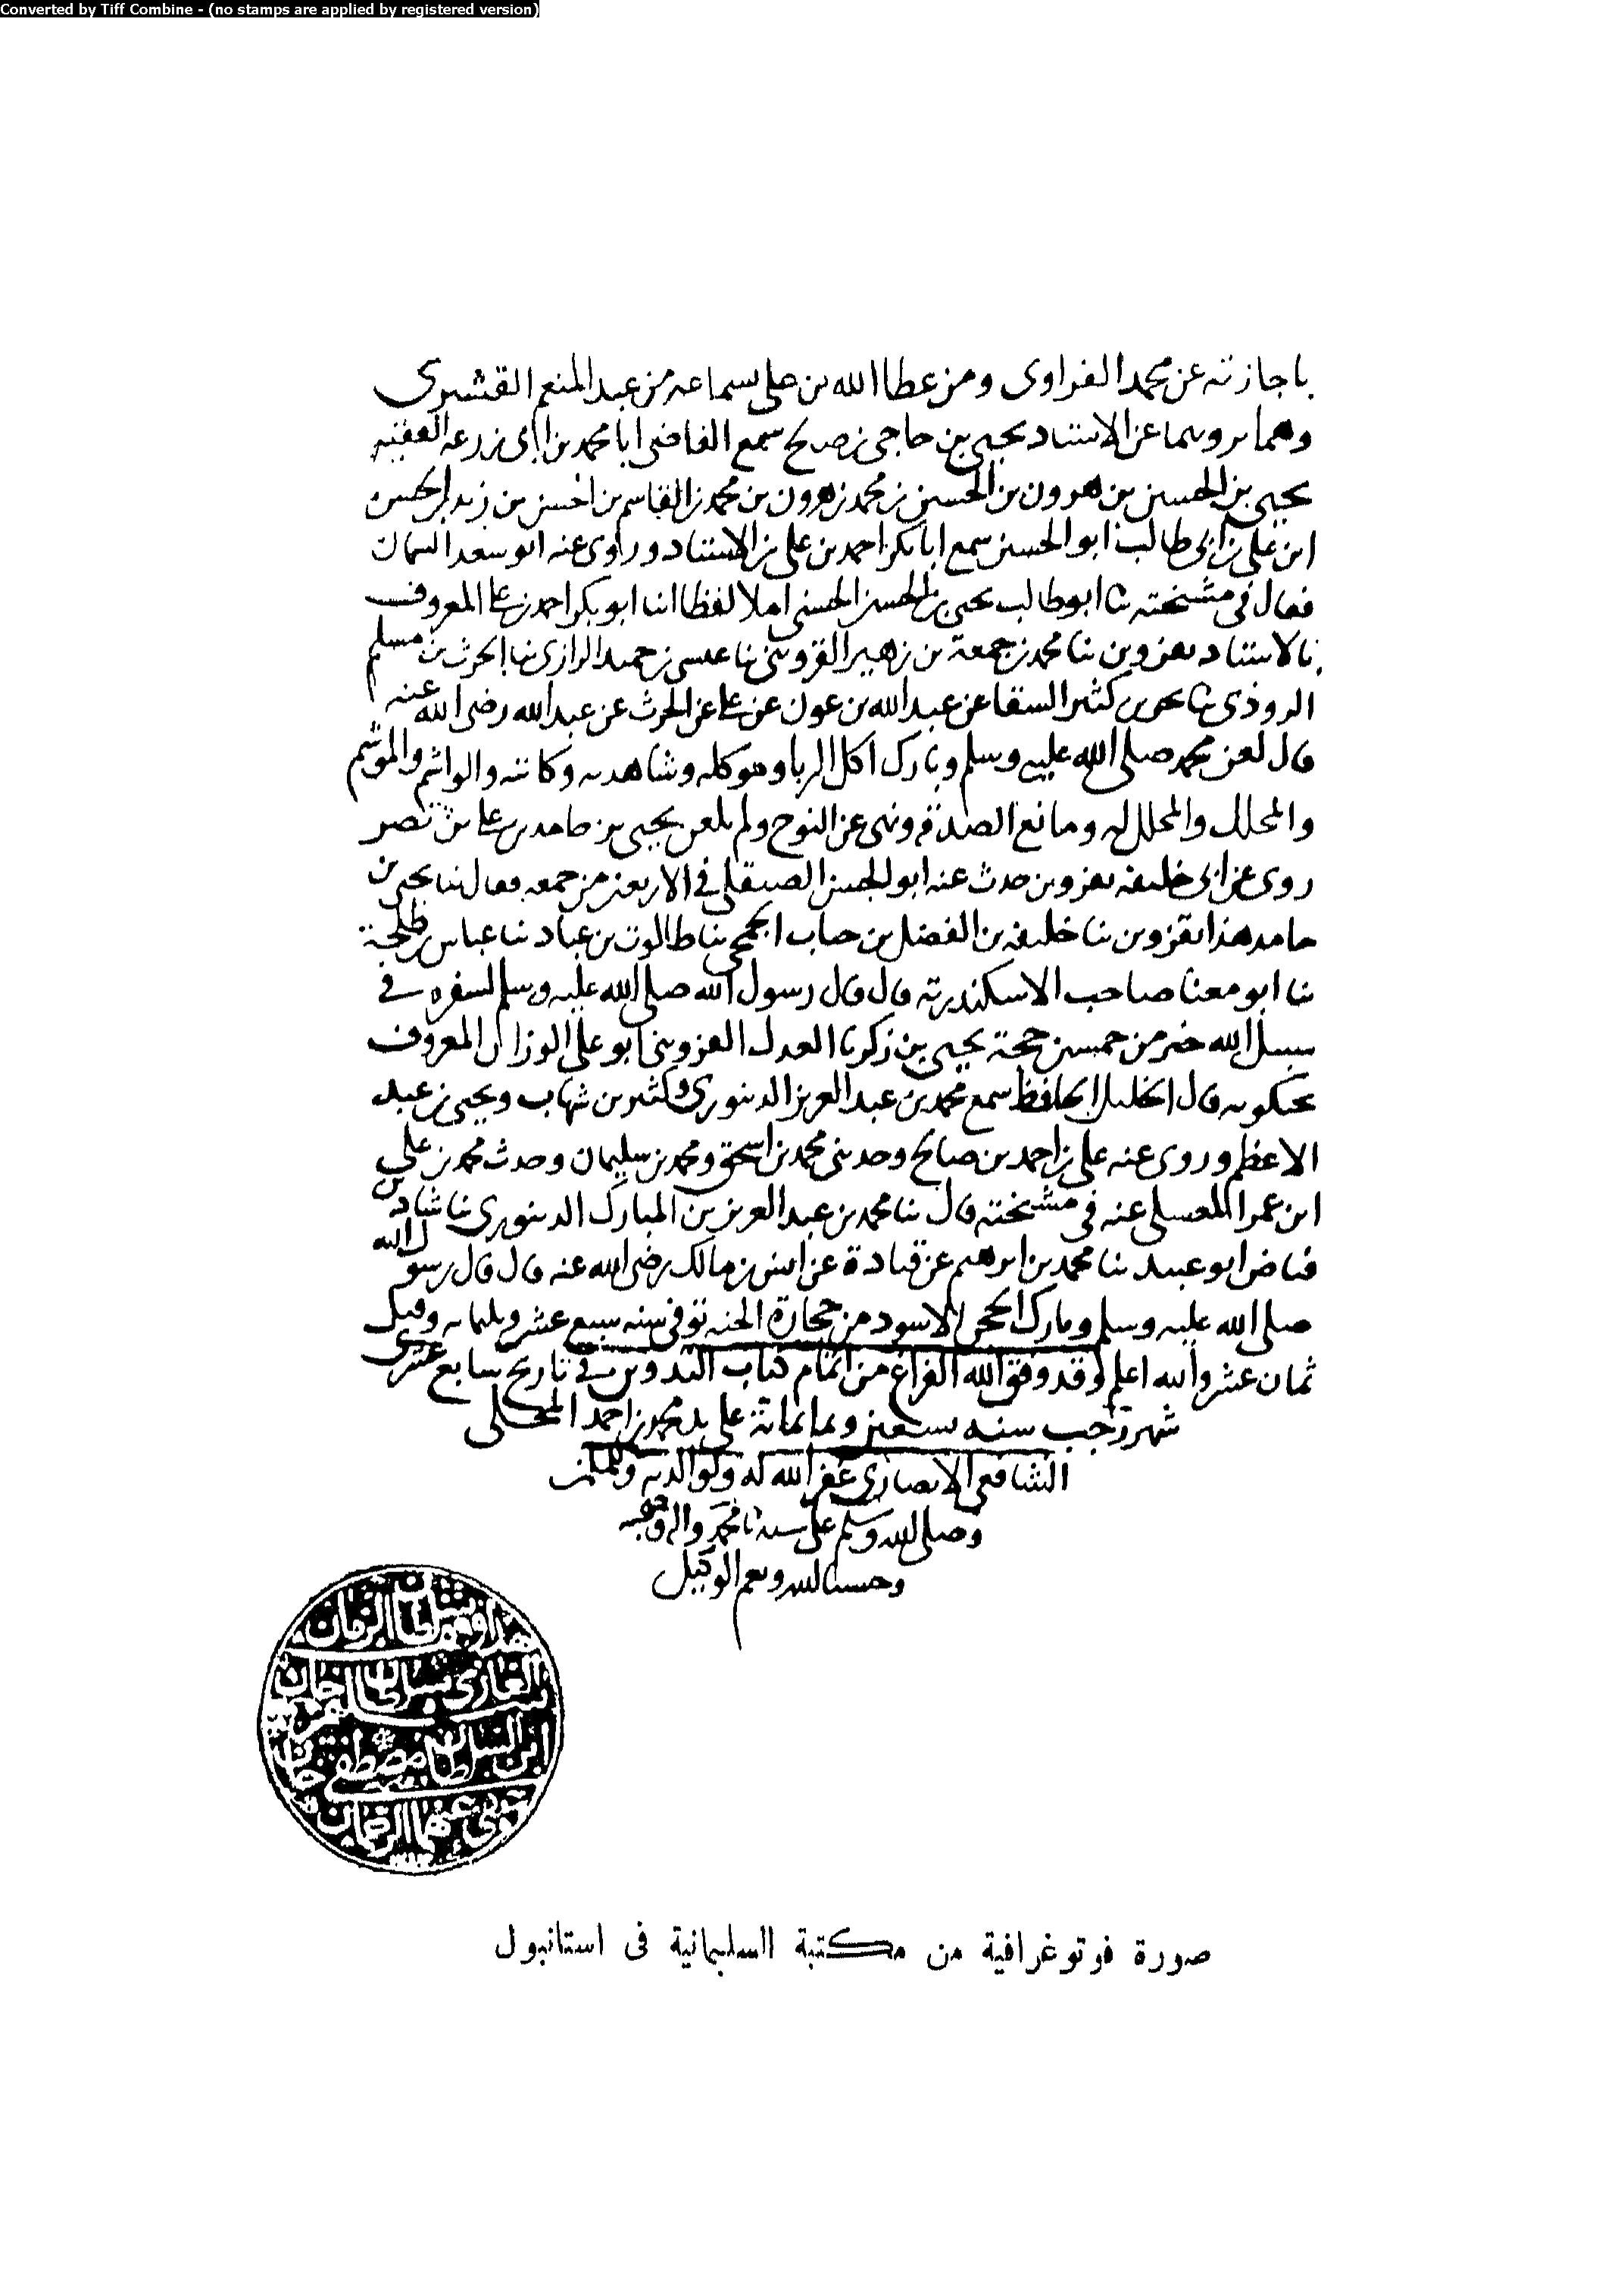 Converted by Tiff Combine - (no stamps are applied by registered version)
باجازته عن محمد الفراوى ومن عطا الله بن على بسماعه من عبد المنعم القشيرى
وهما يرويها عن الاستاد يحيى بن حاجى بن صالح سمع القاضى ابا محمد بن ابى زرعه الفقيه
يحيى بن الحسين بن هرون بن الحسين بن محمد بن هرون بن محمد بن القاسم بن الحسن بن زيد بن الحسن
ابن على بن ابى طالب ابو الحسين سمع ابا بكر احمد بن على بن الاستناد وروى عنه ابو سعد السمان
فقال فى مشيخته ثنا ابو طالب يحيى بن الحسين الحسنى املا لفظا انا ابو بكر احمد بن على المعروف
بالاستناد بقزوين ثنا محمد بن جمعة بن زهير القزوينى ثنا عيسى بن حميد الرازى ثنا الحرث بن مسلم
الروذى ثنا بحر بن كثير السقا عن عبد الله بن عون عن على عن الحرث عن عبد الله رضى الله عنه
قال لعن محمد صلى الله عليه وسلم وبارك اكل الربا وموكله وشاهديه وكاتبه والواشم والموتشم
والمحلل والمحلل له ومانع الصدقة ونهى عن النوح ولم يلعن يحيى بن حامد بن على بن نصر
روى عن ابى خليفه بقزوين حدث عنه ابو الحسن الصيقلى فى الاربعين من جمعه فقال ثنا يحيى بن
حامد هذا بقزوين ثنا خليفه بن الفضل بن حباب الجمحى ثنا طالوت بن عباد ثنا عباس بن طلحة
ثنا ابو معنا صاحب الاسكندرية قال قال رسول الله صلى الله عليه وسلم لسفره فى
سبيل الله خير من خمسين حجة يحيى بن زكريا العدل القزوينى ابو على الوزان المعروف
بحيكويه قال الخليل الحافظ سمع محمد بن عبد العزيز الدينورى وكثير بن شهاب ويحيى بن عبد
الاعظم وروى عنه على بن احمد بن صالح وحدثنى محمد بن اسحق ومحمد بن سليمان وحدث محمد بن على
ابن عمر المعسلى عنه فى مشيخته قال ثنا محمد بن عبد العزيز بن المبارك الدينورى ثنا شاذ بن
فياض ابو عبيد ثنا محمد بن ابرهيم عن قتادة عن انس بن مالك رضى الله عنه قال قال رسول الله
صلى الله عليه وسلم وبارك الحجر الاسود من حجارة الجنه توفى سنه سبع عشر وثلثمايه وقيل
ثمان عشر والله اعلم وقد وفق الله الفراغ من اتمام كتاب التدوين فى تاريخ سابع عشرى
شهر رجب سنه وثمانمائة على يد محمد بن احمد المحلى
الشافعى الانصارى غفر الله له ولوالديه وللمسلمين
وصلى الله وسلم على سيدنا محمد واله وصحبه
وحسبنا الله ونعم الوكيل
هذا وقف سلطان الزمان
الغازى سلطان سليم خان
ابن السلطان مصطفى خان
عفى عنهما الرحمان
صورة فوتوغرافية من مكتبة السليمانية فى استانبول